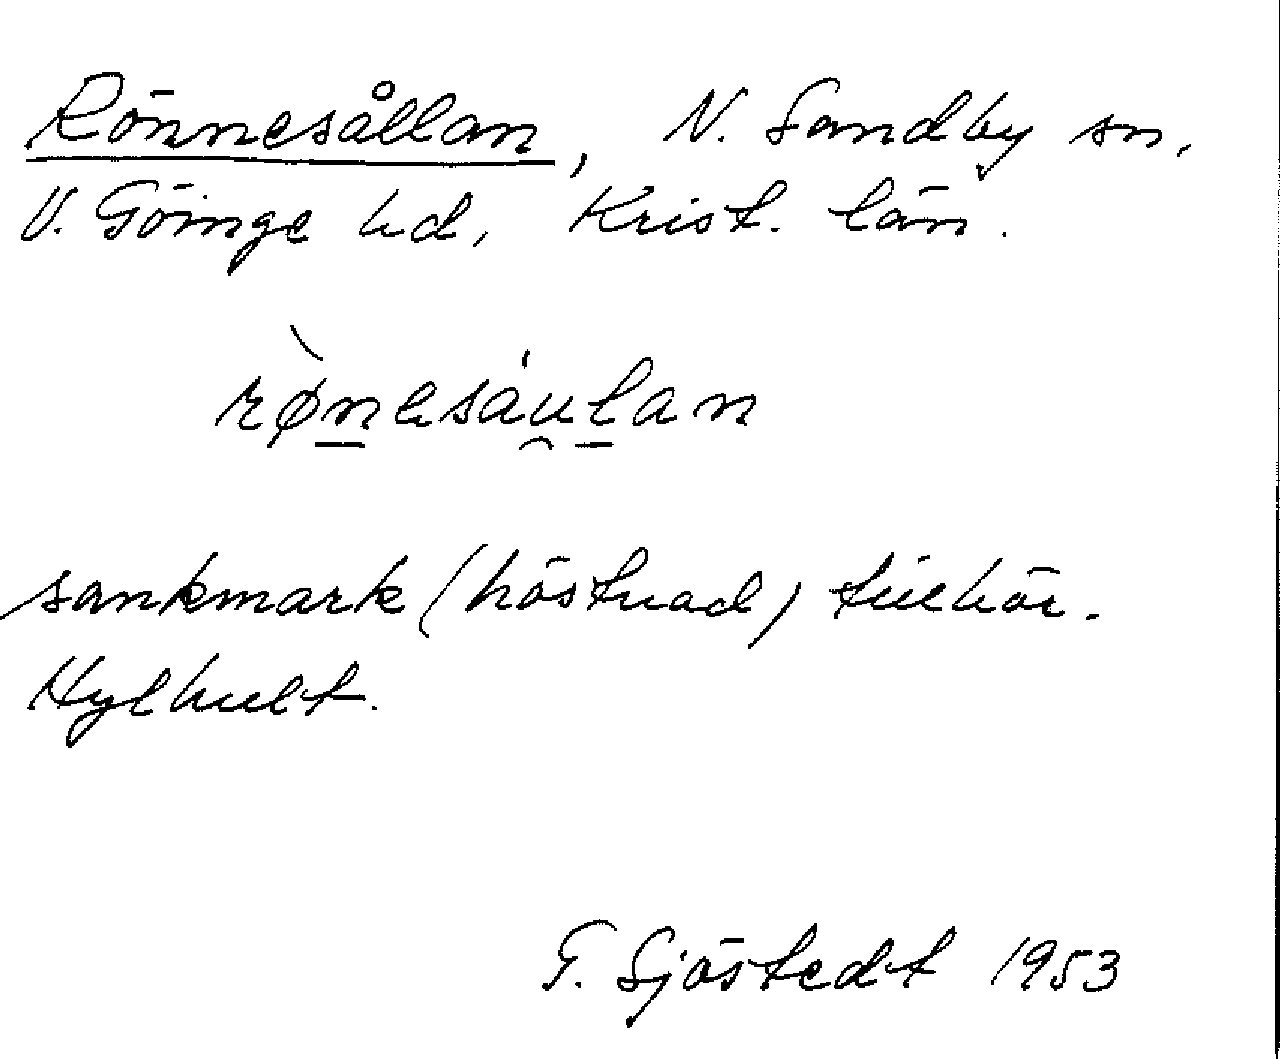 Rönnesållan, N. Sandby sn,
V. Göinge hd, Krist. län.
rø̀nesáu̯lan
sankmark (höstnad) tillhör.
Hylhult.
G. Sjöstedt 1953